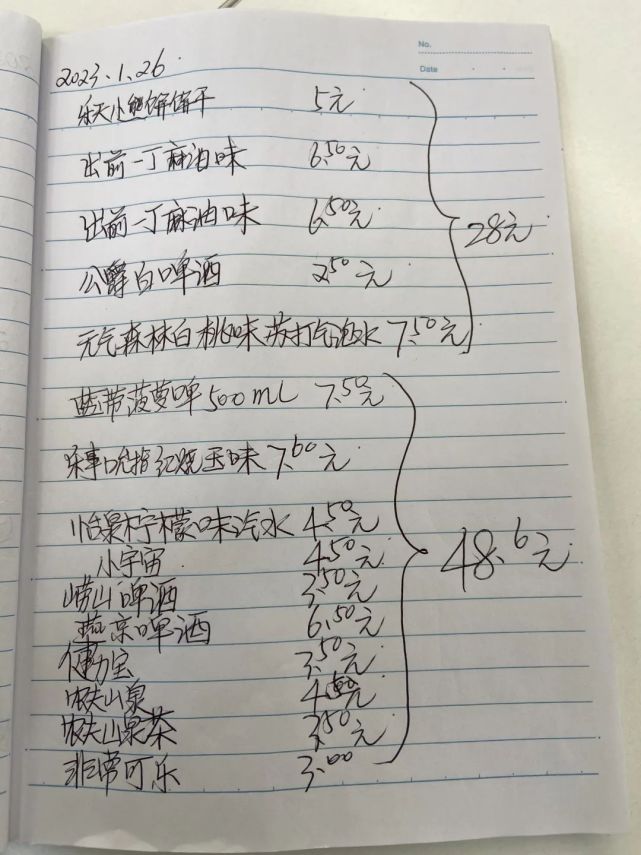 No.
Date
2023.1.26
乐天小熊饼饼干 5元
出前一丁麻油味 6.50元
出前一丁麻油味 6.50元
28元
公爵白啤酒 2.50元
元气森林白桃味苏打气泡水 7.50元
蓝带菠萝啤500mL 7.50元
乐事吮指红烧玉味 7.60元
怡泉柠檬味汽水 4.50元
小宇宙 4.50元
48.6元
崂山啤酒 3.50元
燕京啤酒 6.50元
健力宝 3.50元
农夫山泉 4.50元
农夫山泉茶 3.50元
非常可乐 3.00